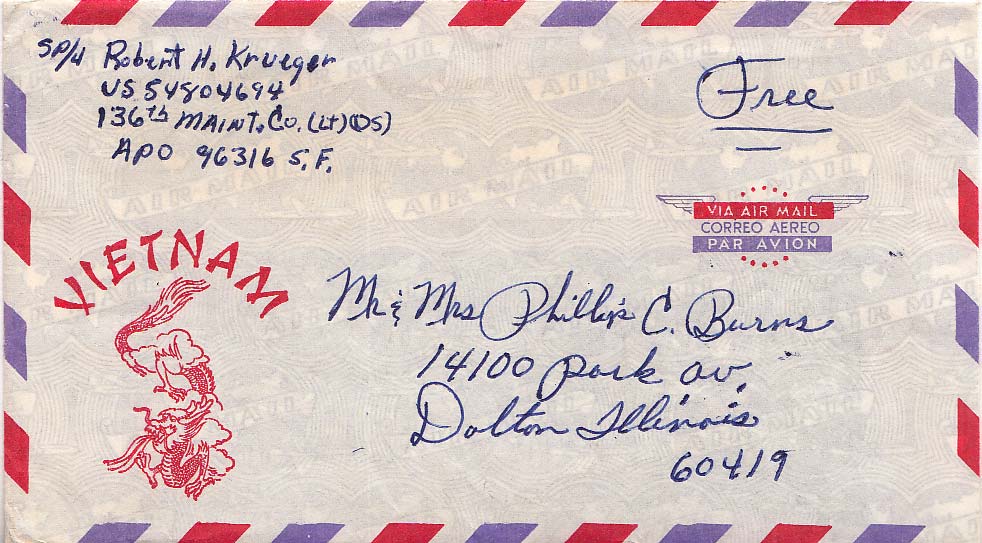 SP/4 Robert H. Krueger
US 54804694
136th MAINT. Co. (Lt) (DS)
APO 96316 S.F.
Free
VIA AIR MAIL
CORREO AEREO
PAR AVION
VIETNAM
Mr & Mrs Phillip C. Burns
14100 Park av.
Dolton Illinois
60419